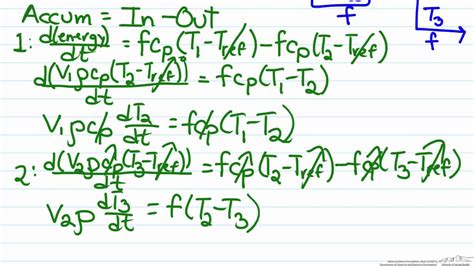 Accum = In - Out
f
T3
f
1: d(energy)/dt = fcp(T1-Tref)-fcp(T2-Tref)
d(V1ρcp(T2-Tref))/dt = fcp(T1-T2)
V1ρcp dT2/dt = fcp(T1-T2)
2: d(V2ρcp(T3-Tref))/dt = fcp(T2-Tref)-fcp(T3-Tref)
V2ρ dT3/dt = f(T2-T3)